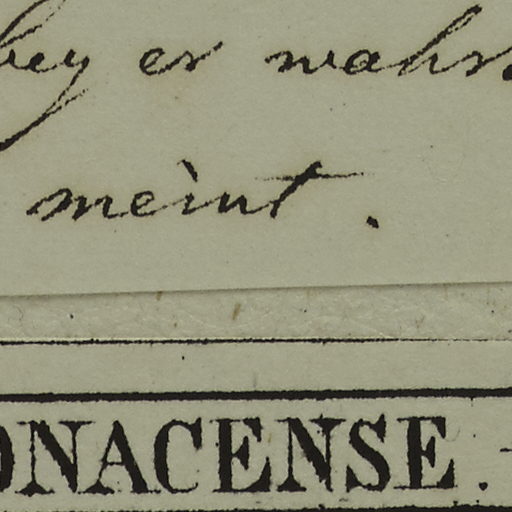 bey er wahrs
meint.
ONACENSE.